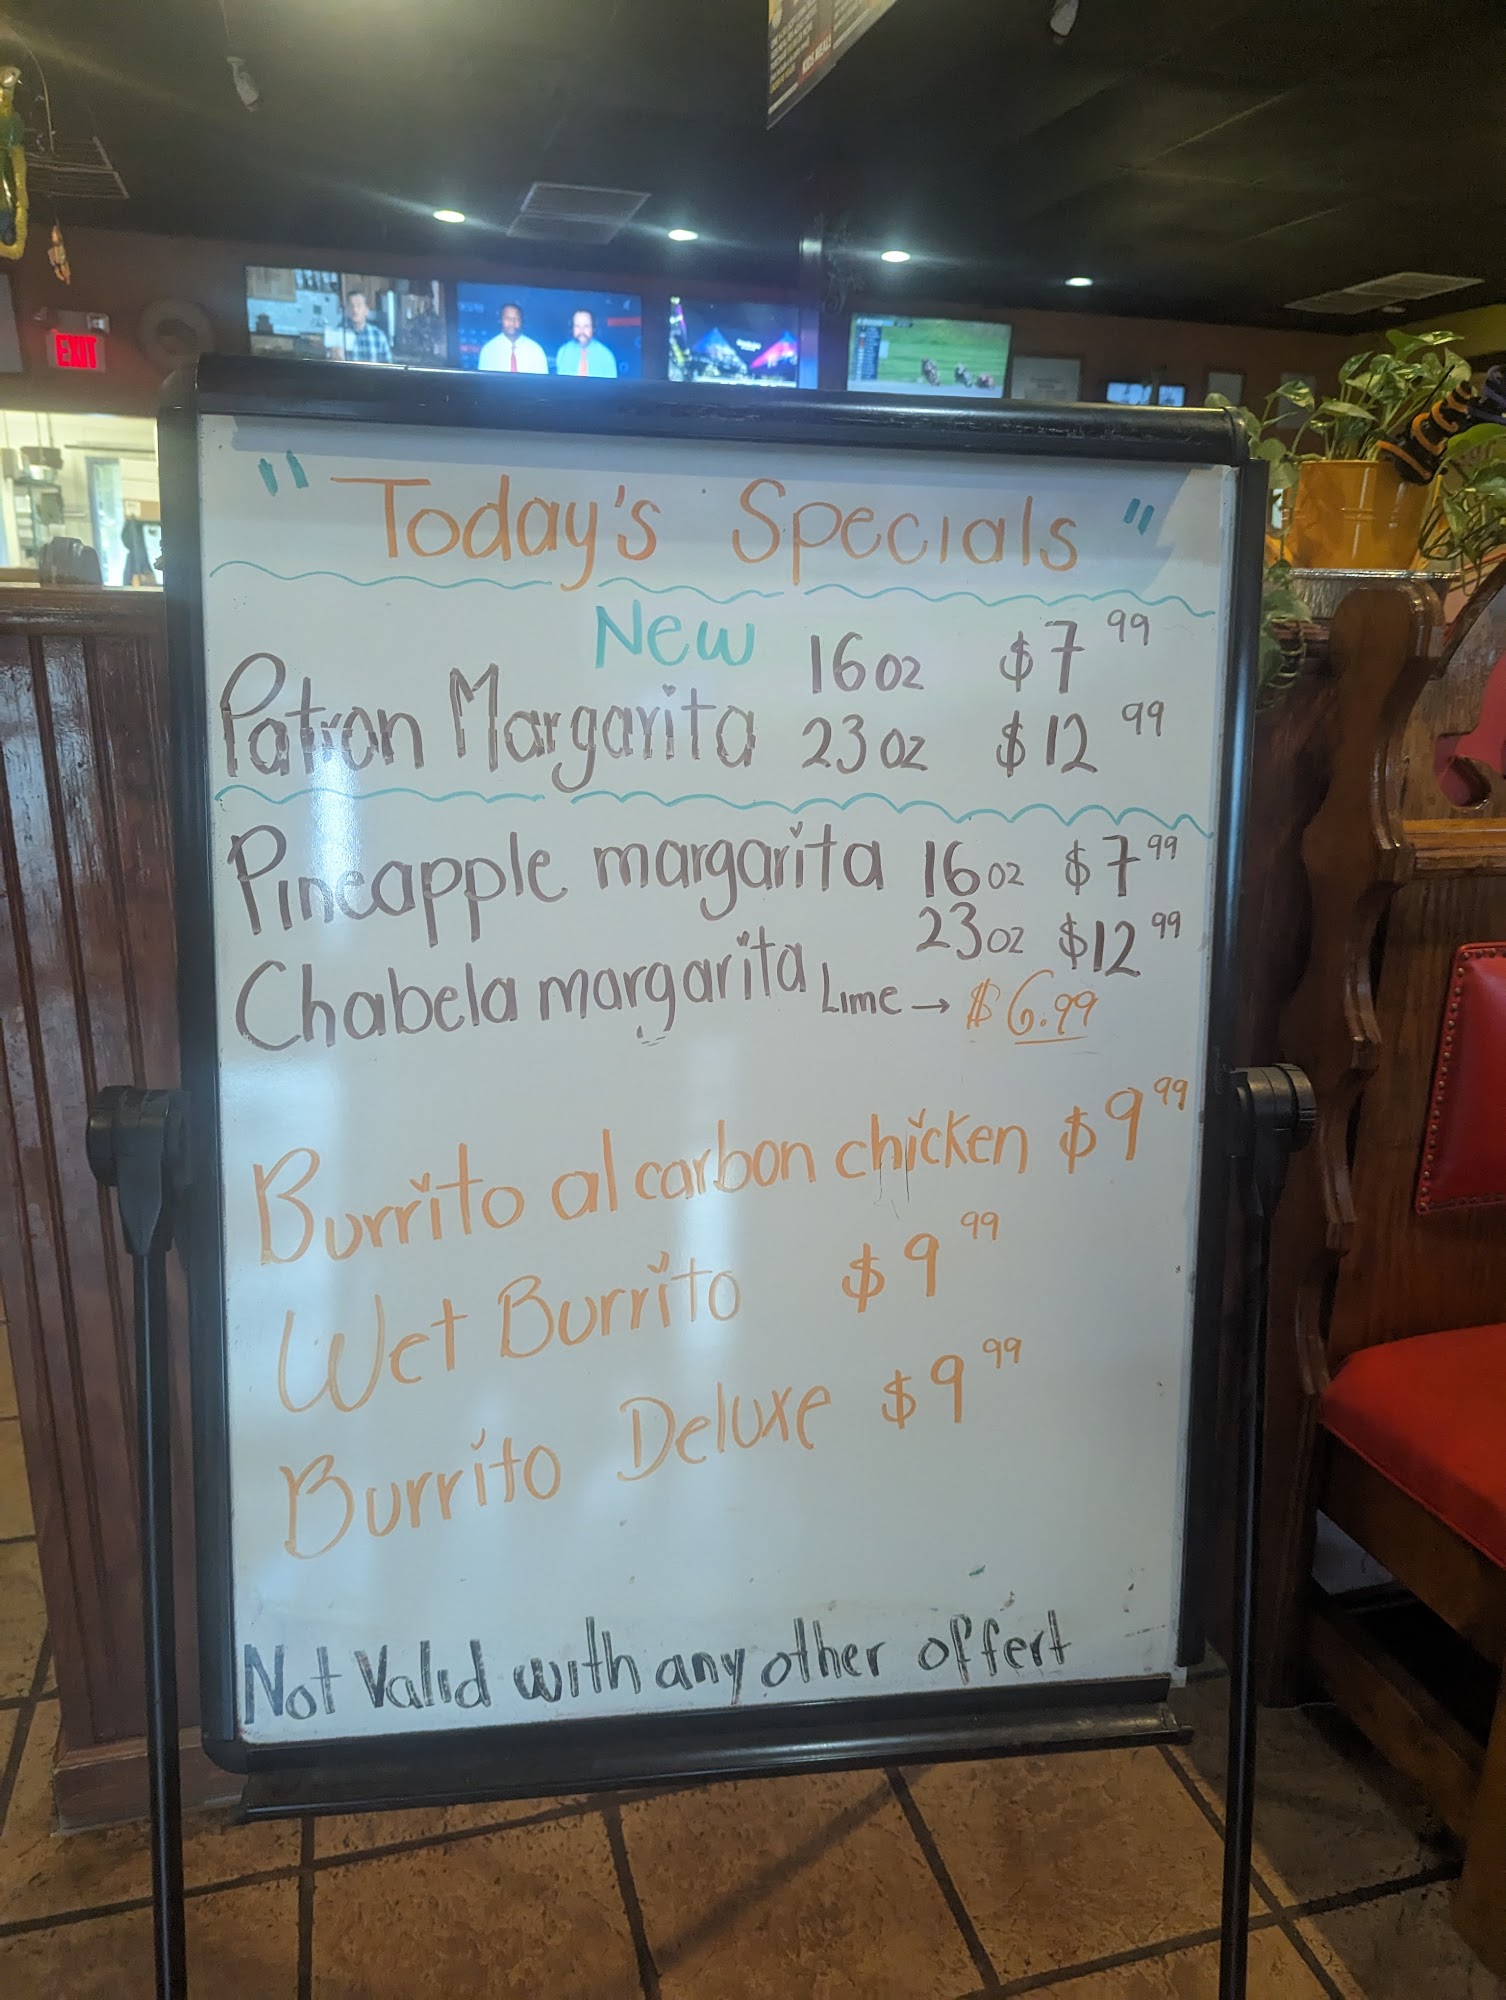 KIDS MEALS
EXIT
"Today's Specials"
New 16oz $7 99
Patron Margarita 23oz $12 99
Pineapple margarita 16oz $7 99
23oz $12 99
Chabela margarita Lime → $6.99
Burrito al carbon chicken $9 99
Wet Burrito $9 99
Burrito Deluxe $9 99
Not Valid with any other offert